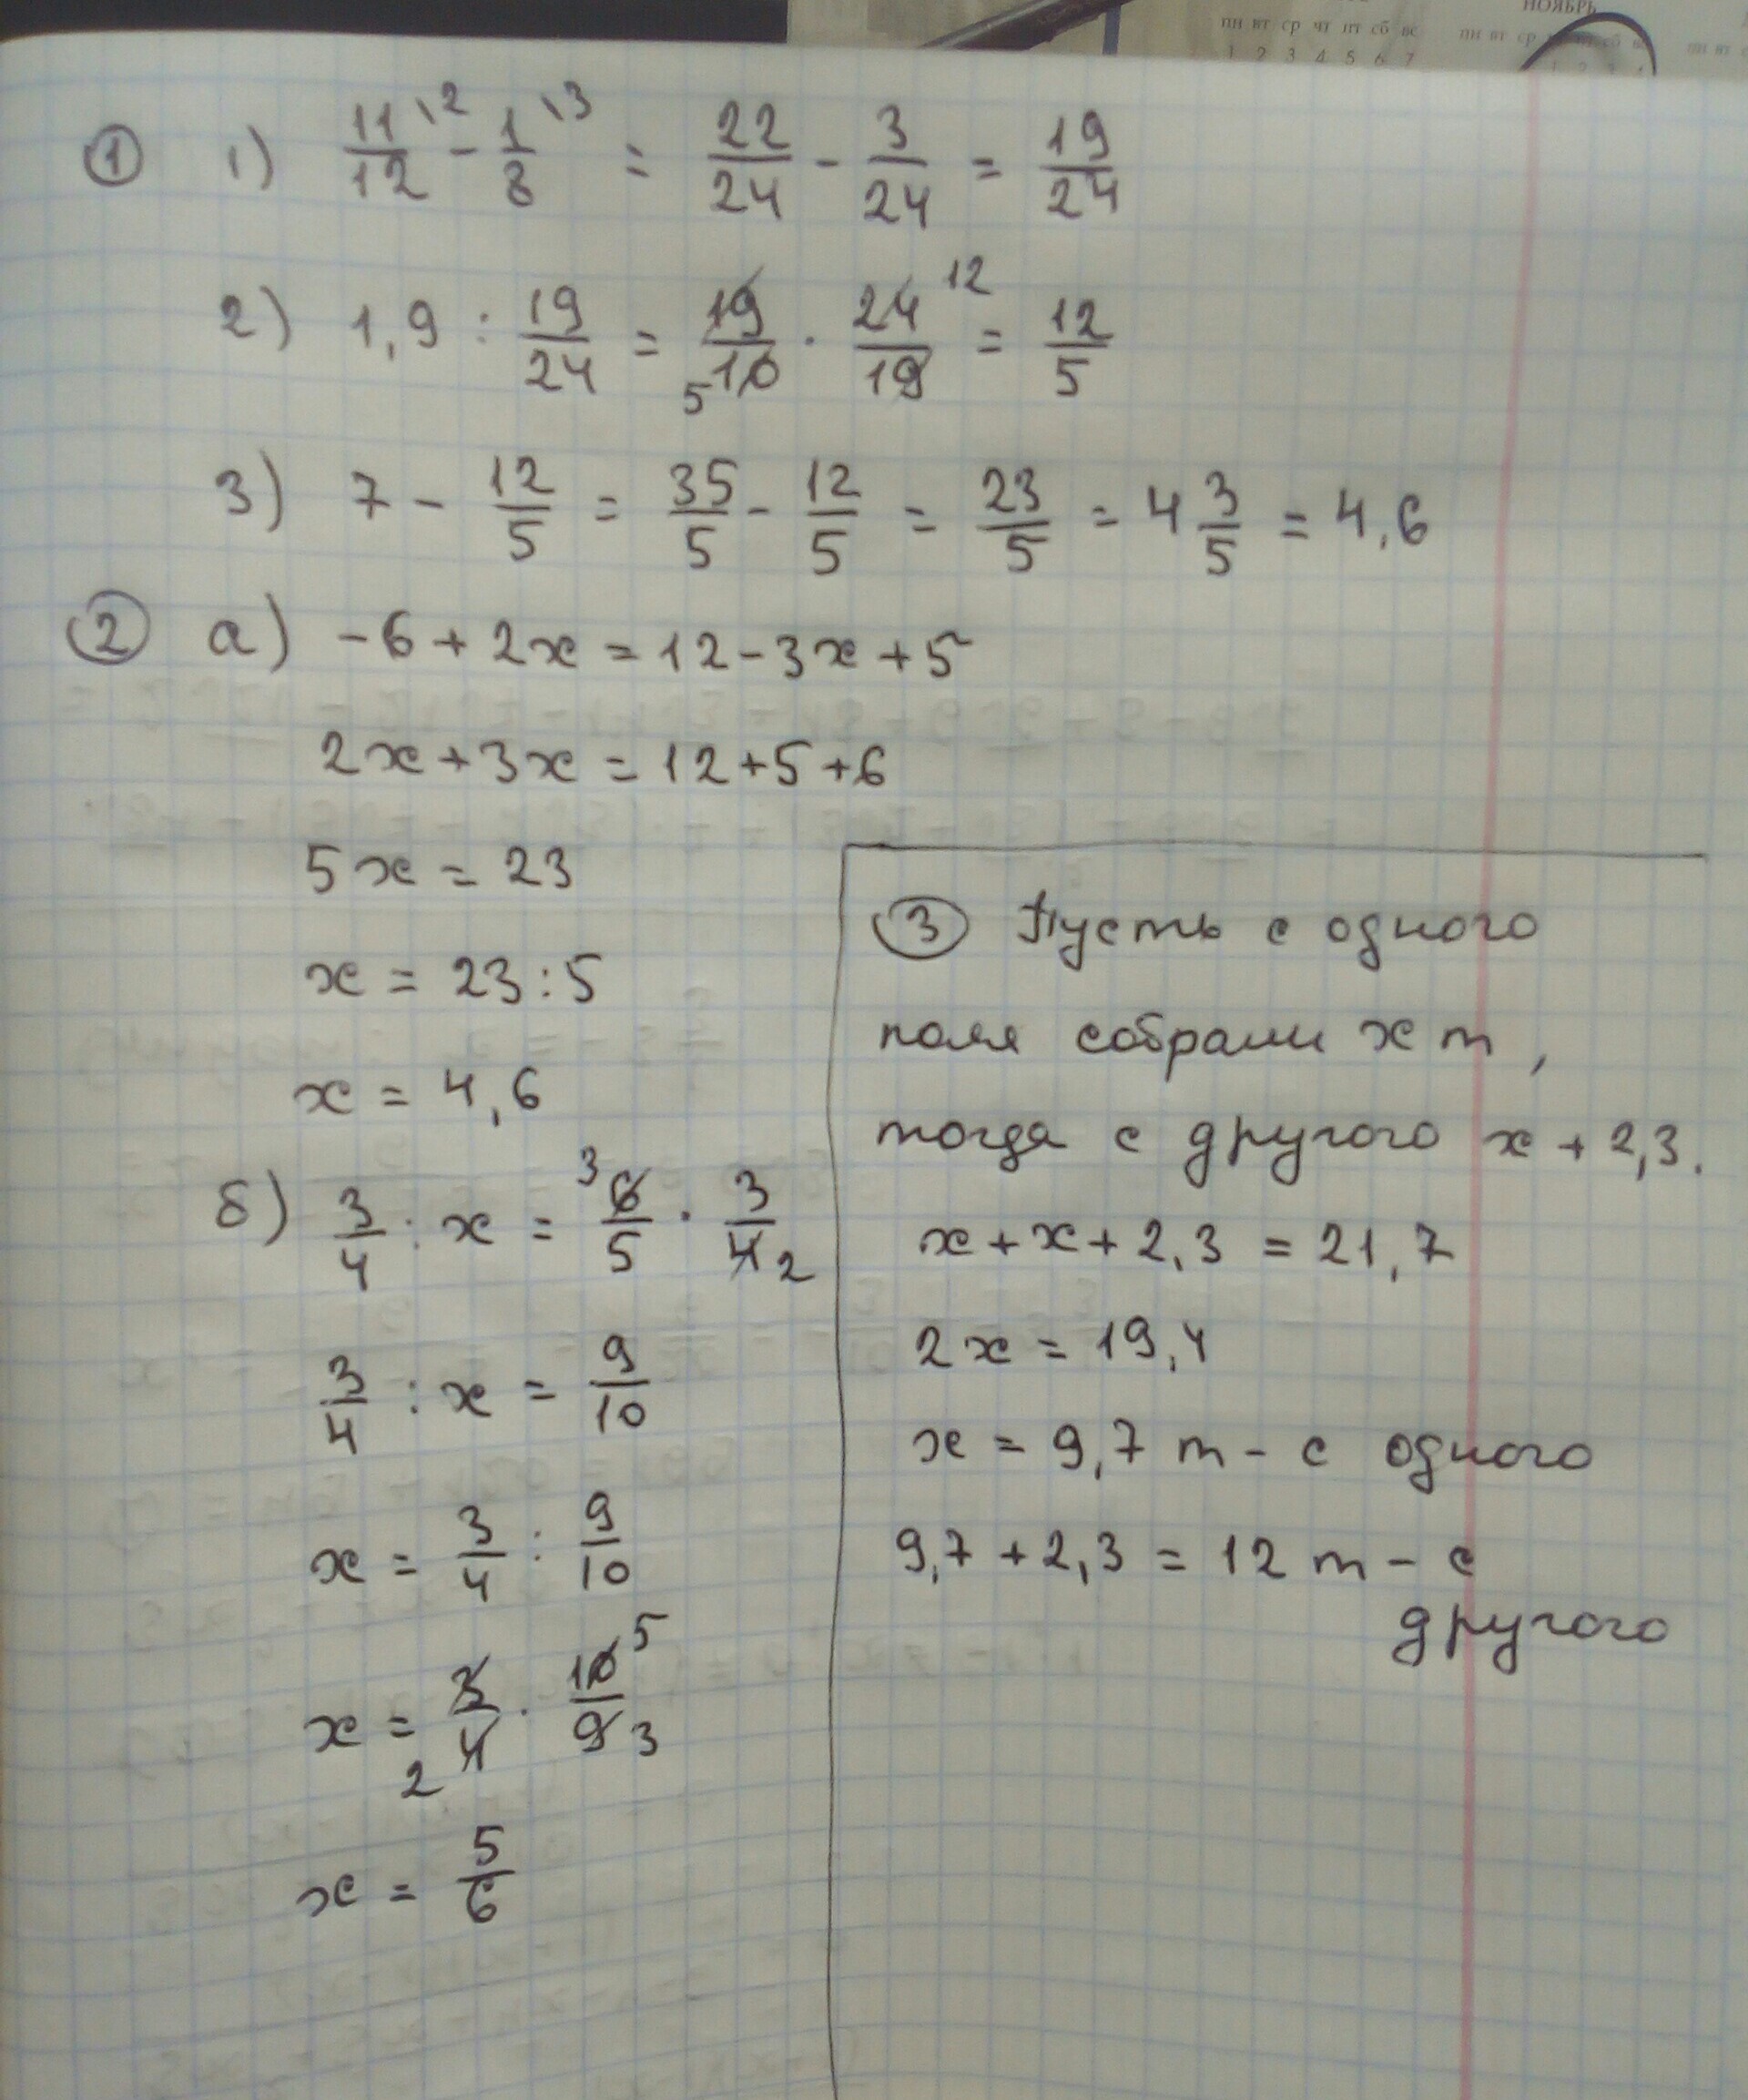 НОЯБРЬ
пн вт ср чт пт сб вс
пн вт ср пт сб вс
1 2 3 4 5 6 7
① 1) 11/12 \2 - 1/8 \3 = 22/24 - 3/24 = 19/24
2) 1,9 : 19/24 = 19/10 5 · 24/19 12 = 12/5
3) 7 - 12/5 = 35/5 - 12/5 = 23/5 = 4 3/5 = 4,6
② а) -6 + 2x = 12 - 3x + 5
2x + 3x = 12 + 5 + 6
5x = 23
x = 23 : 5
x = 4,6
б) 3/4 : x = 3 6/5 · 3/4 2
3/4 : x = 9/10
x = 3/4 : 9/10
x = 2 3/4 · 10/9 5 3
x = 5/6
③ Пусть с одного
поля собрали x т,
тогда с другого x + 2,3.
x + x + 2,3 = 21,7
2x = 19,4
x = 9,7 т - с одного
9,7 + 2,3 = 12 т - с
другого